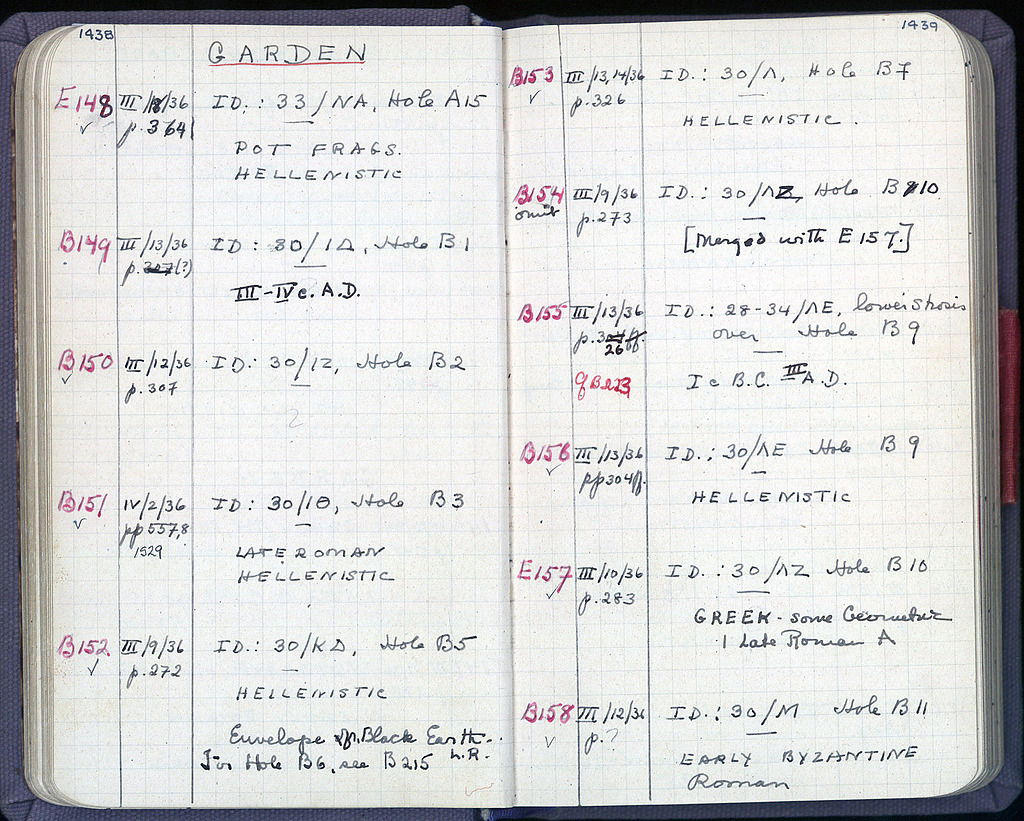 1438
GARDEN
E148 III/18/36 ID.: 33/NA, Hole A15
✓ p. 364
POT FRAGS.
HELLENISTIC
B149 III/13/36 ID: 30/IΔ, Hole B1
p. (?)
III-IV c. A.D.
B150 III/12/36 ID: 30/IZ, Hole B2
✓ p. 307
?
B151 IV/2/36 ID: 30/IΘ, Hole B3
✓ pp 557,8
1529
LATE ROMAN
HELLENISTIC
B152 III/9/36 ID: 30/KΔ, Hole B5
✓ p. 272
HELLENISTIC
Envelope Black Earth.
For Hole B6, see B215 L.R.
1439
B153 III/13,14/36 ID.: 30/Λ, Hole B7
✓ p. 326
HELLENISTIC.
B154 III/9/36 ID: 30/ΛZ, Hole B10
omit p. 273
[Merged with E157.]
B155 III/13/36 ID.: 28-34/ΛE, lower strosis
p. 326 ff over Hole B9
I c B.C. III A.D.
B156 III/13/36 ID.: 30/ΛE Hole B9
✓ pp 304 ff.
HELLENISTIC
E157 III/10/36 ID.: 30/ΛZ Hole B10
✓ p. 283
GREEK - some Geometric
1 Late Roman A
B158 III/12/36 ID.: 30/M Hole B11
✓ p. ?
EARLY BYZANTINE
Roman